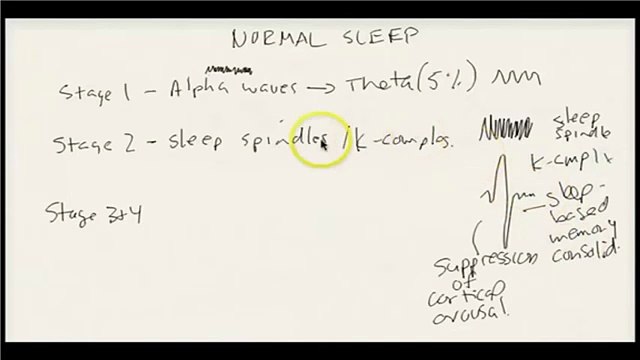 NORMAL SLEEP
Stage 1 - Alpha waves → Theta (5%)
Stage 2 - sleep spindles / K-complex.
sleep
spindle
K-cmplx
Stage 3+4
sleep-
based
memory
consolid.
suppression
of
cortical
arousal.